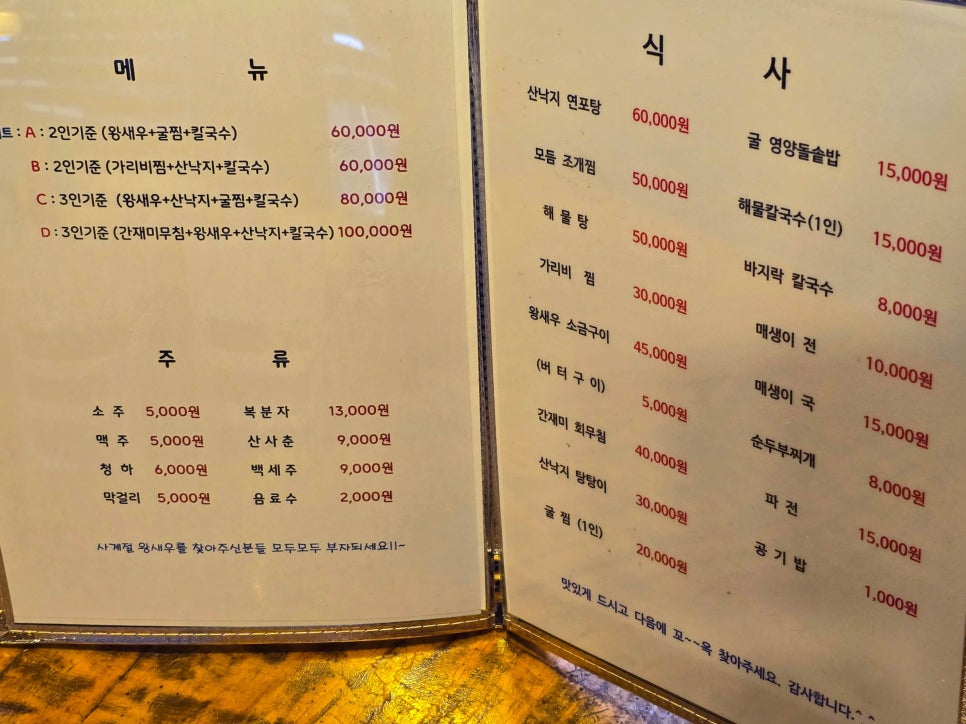 메 뉴
트 : A : 2인기준 (왕새우+굴찜+칼국수) 60,000원
B : 2인기준 (가리비찜+산낙지+칼국수) 60,000원
C : 3인기준 (왕새우+산낙지+굴찜+칼국수) 80,000원
D : 3인기준 (간재미무침+왕새우+산낙지+칼국수) 100,000원
주 류
소 주 5,000원 복 분 자 13,000원
맥 주 5,000원 산 사 춘 9,000원
청 하 6,000원 백 세 주 9,000원
막걸리 5,000원 음 료 수 2,000원
사계절 왕새우를 찾아주신분들 모두모두 부자되세요!!~
식 사
산낙지 연포탕 60,000원
모듬 조개찜 50,000원
해 물 탕 50,000원
가리비 찜 30,000원
왕새우 소금구이 45,000원
(버 터 구 이) 5,000원
간재미 회무침 40,000원
산낙지 탕탕이 30,000원
굴 찜 (1인) 20,000원
굴 영양돌솥밥 15,000원
해물칼국수(1인) 15,000원
바지락 칼국수 8,000원
매생이 전 10,000원
매생이 국 15,000원
순두부찌개 8,000원
파 전 15,000원
공 기 밥 1,000원
맛있게 드시고 다음에 꼬~~옥 찾아주세요. 감사합니다.^ ^